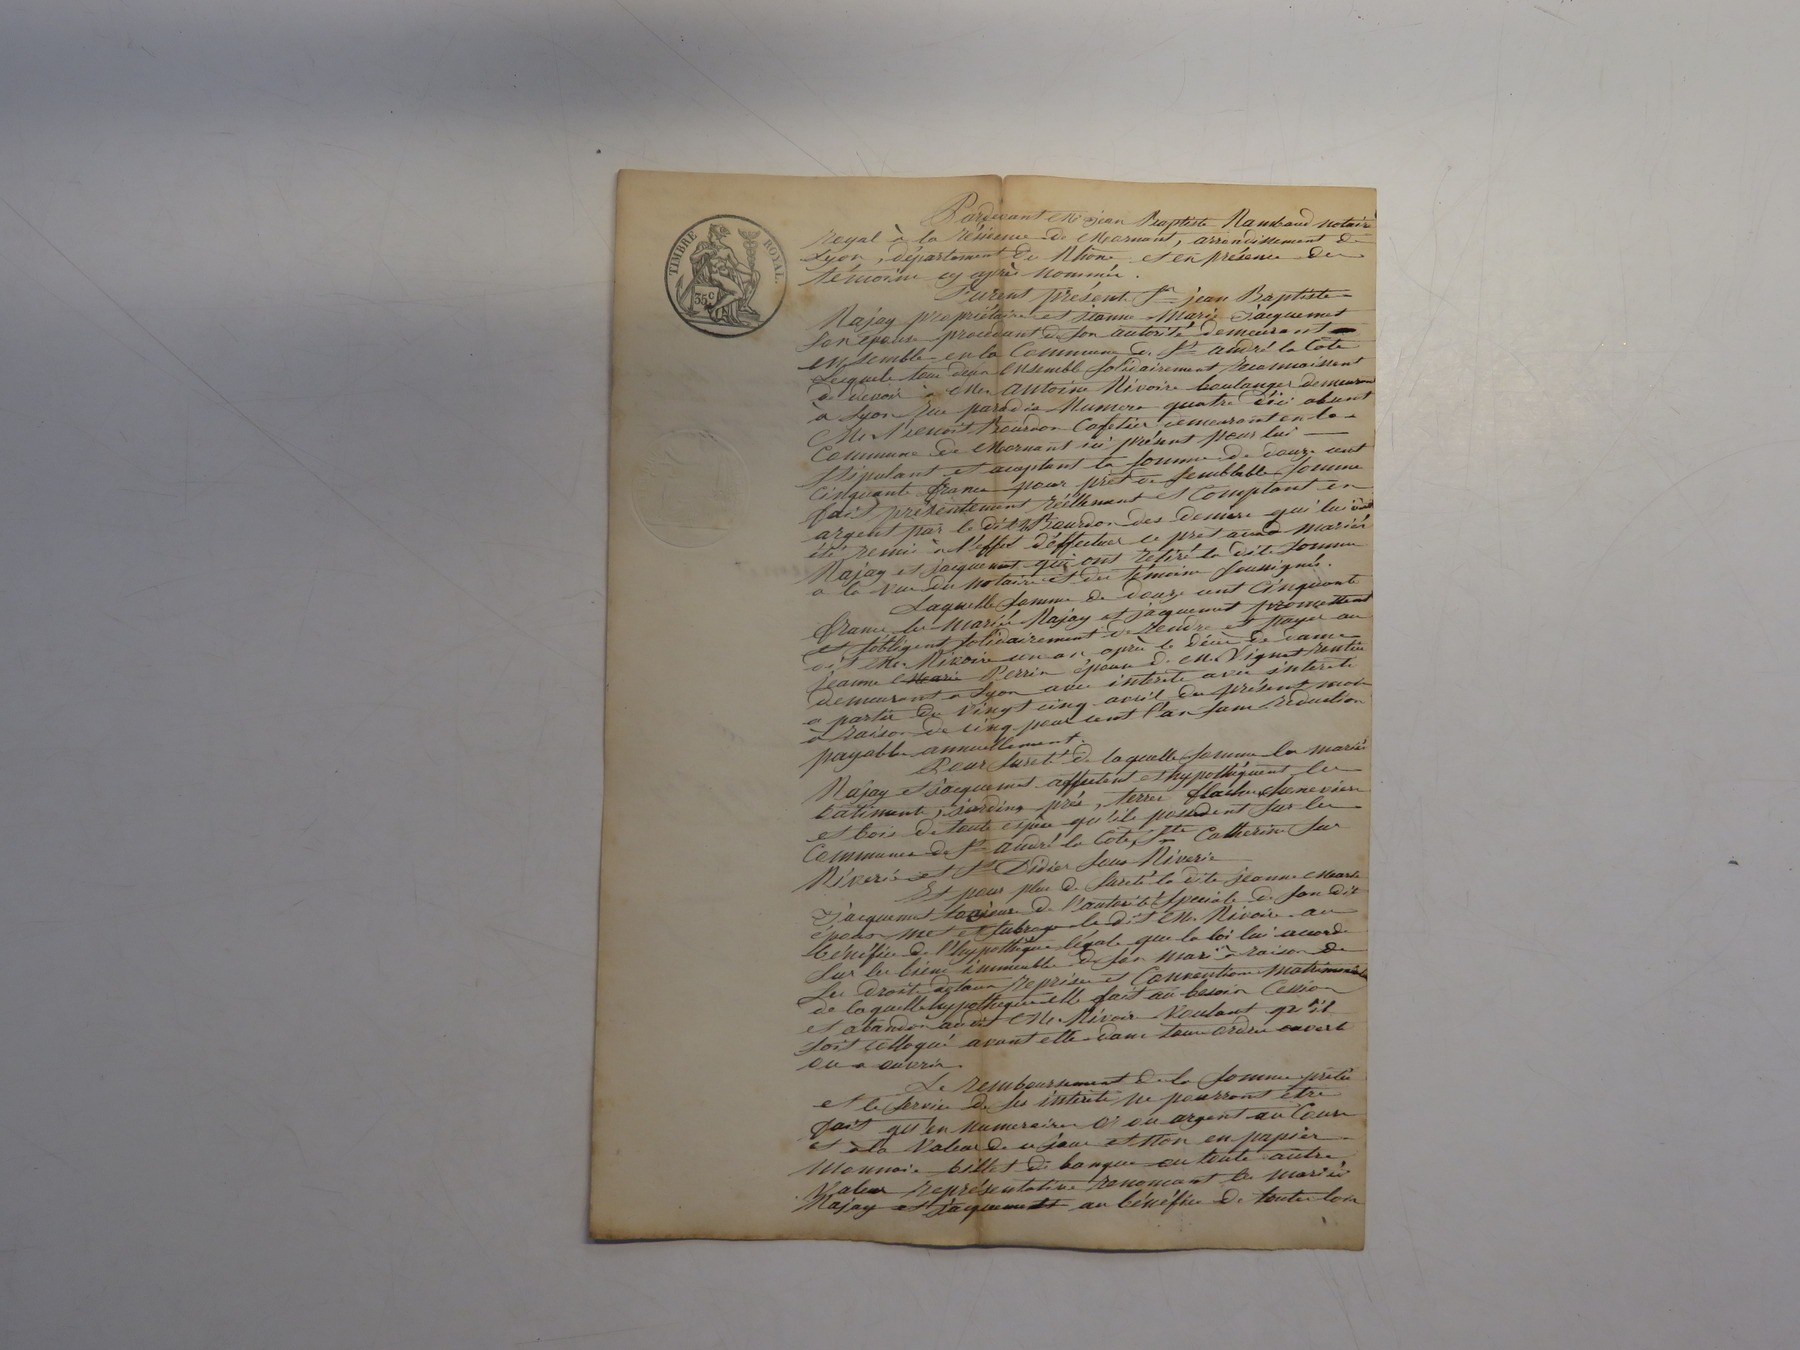 TIMBRE ROYAL.
35c
Pardevant Me jean Baptiste Rambaud notaire
royal à la résidence de Mornant, arrondissement de
Lyon, département du Rhône et en présence des
témoins cy après nommés.
Furent présent Sr jean Baptiste
Najay propriétaire et jeanne Marie Jacquemet
Son épouse procédant de son autorité demeurant
ensemble en la Commune de St andré la Cote
Lesquels tous deux ensemble solidairement reconnaissent
de devoir à Mr antoine Rivoire boulanger demeurant
à Lyon rue paradis Numero quatre ici absent
Mr Benoit Bourdon Cafetier demeurant en la
Commune de Mornant ici présent pour lui
Stipulant et acceptant la somme de douze cent
Cinquante francs pour prêt de semblable somme
fait présentement réellement et Comptant en
argent par le dit Mr Bourdon des deniers qui lui ont
été remis à l'effet d'éffectuer ce pret auxd mariés
Najay et jacquemet qui ont retiré la dite somme
a la vue du notaire et des témoins soussignés.
Laquelle somme de douze cent Cinquante
francs les mariés Najay et jacquemet promettent
et s'obligent solidairement de rendre et payer au
dit Mr Rivoire un an après le décès de dame
jeanne Marie Perrin épouse de Mr Vignat rentier
demeurant a Lyon avec intérêts
a partir du Vingt cinq avril du présent mois
à raison de cinq pour cent l'an sans réduction
payable annuellement.
Pour sureté de laquelle somme les mariés
Najay et Jacquemet affectent et hypothèquent les
batiments, jardins, prés, terres Chenevier
et bois de toute espèce qu'ils possèdent sur les
Communes de St andré la Cote, Ste Catherine sur
Riverie et St Didier sous Riverie
Et pour plus de sureté la dite jeanne Marie
Jacquemet toujours de l'autorité spéciale de son dit
époux met et subroge le dit Mr Rivoire au
bénéfice de l'hypothèque légale que la loi lui accorde
Sur les biens immeubles de son mari à raison de
Ses droits dotaux reprises et Conventions matrimoniales
de laquelle hypothèque elle fait au besoin Cession
et abandon audit Mr Rivoire Voulant qu'il
soit colloqué avant elle dans tous ordres ouverts
ou a ouvrir.
Le remboursement de la somme prêtée
et le service de ses intérêts ne pourront être
fait qu'en numeraire d'or ou argent au Cours
et à la Valeur de ce jour et Non en papier
Monnaie billet de banque ou toute autre
Valeur représentative renonçant les mariés
Najay et Jacquemet au bénéfice de toutes lois